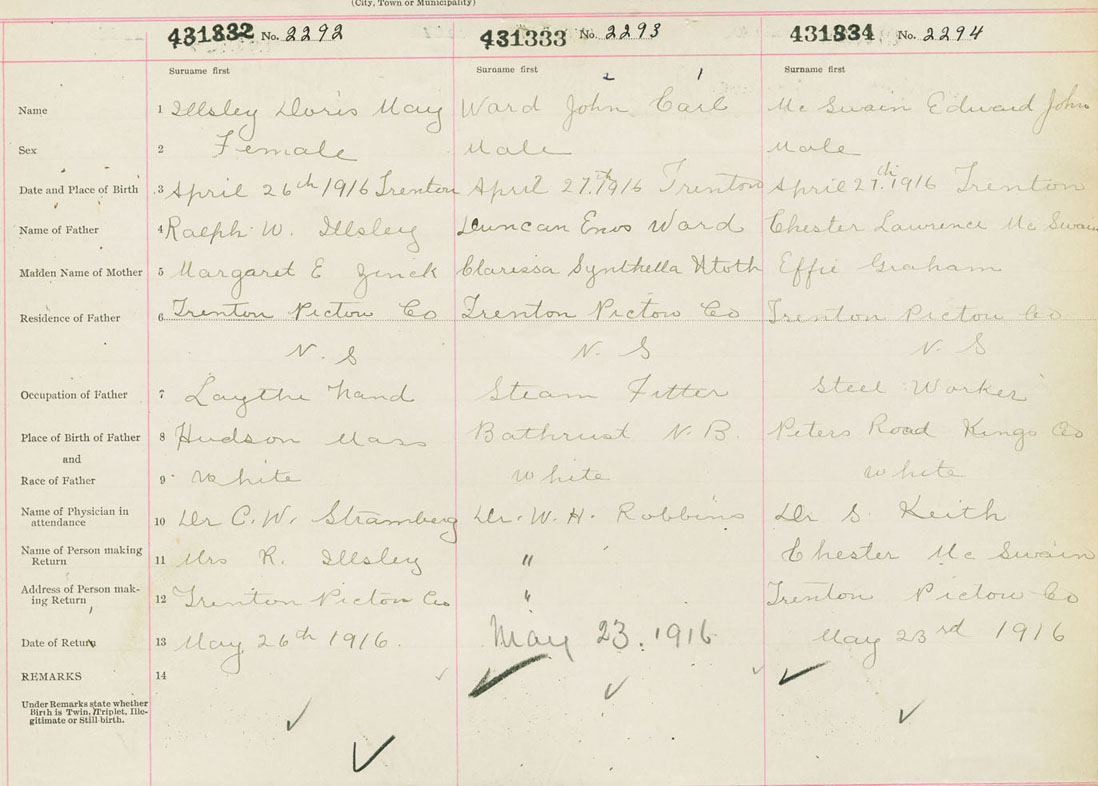 (City, Town or Municipality)
431332 No. 2292 431333 No. 2293 431334 No. 2294
Surname first Surname first Surname first
2 1
Name 1 Illsley Doris May Ward John Carl Mc Swain Edward John
Sex 2 Female Male Male
Date and Place of Birth 3 April 26th 1916 Trenton April 27th 1916 Trenton April 27th 1916 Trenton
Name of Father 4 Ralph W. Illsley Duncan Enos Ward Chester Lawrence Mc Swain
Maiden Name of Mother 5 Margaret E Zinck Clarissa Synthella Effie Graham
Residence of Father 6 Trenton Pictou Co Trenton Pictou Co Trenton Pictou Co
N. S N. S N. S
Occupation of Father 7 Laythe Hand Steam Fitter Steel Worker
Place of Birth of Father 8 Hudson Mass Bathrust N.B. Peters Road Kings Co
and
Race of Father 9 White White White
Name of Physician in
attendance 10 Dr C. W. Stramberg Dr. W. H. Robbins Dr S. Keith
Name of Person making
Return 11 Mrs R. Illsley " Chester Mc Swain
Address of Person mak-
ing Return 12 Trenton Pictou Co " Trenton Pictou Co
Date of Return 13 May 26th 1916. May 23. 1916 May 23rd 1916
REMARKS 14
Under Remarks state whether
Birth is Twin, Triplet, Ille-
gitimate or Still-birth.